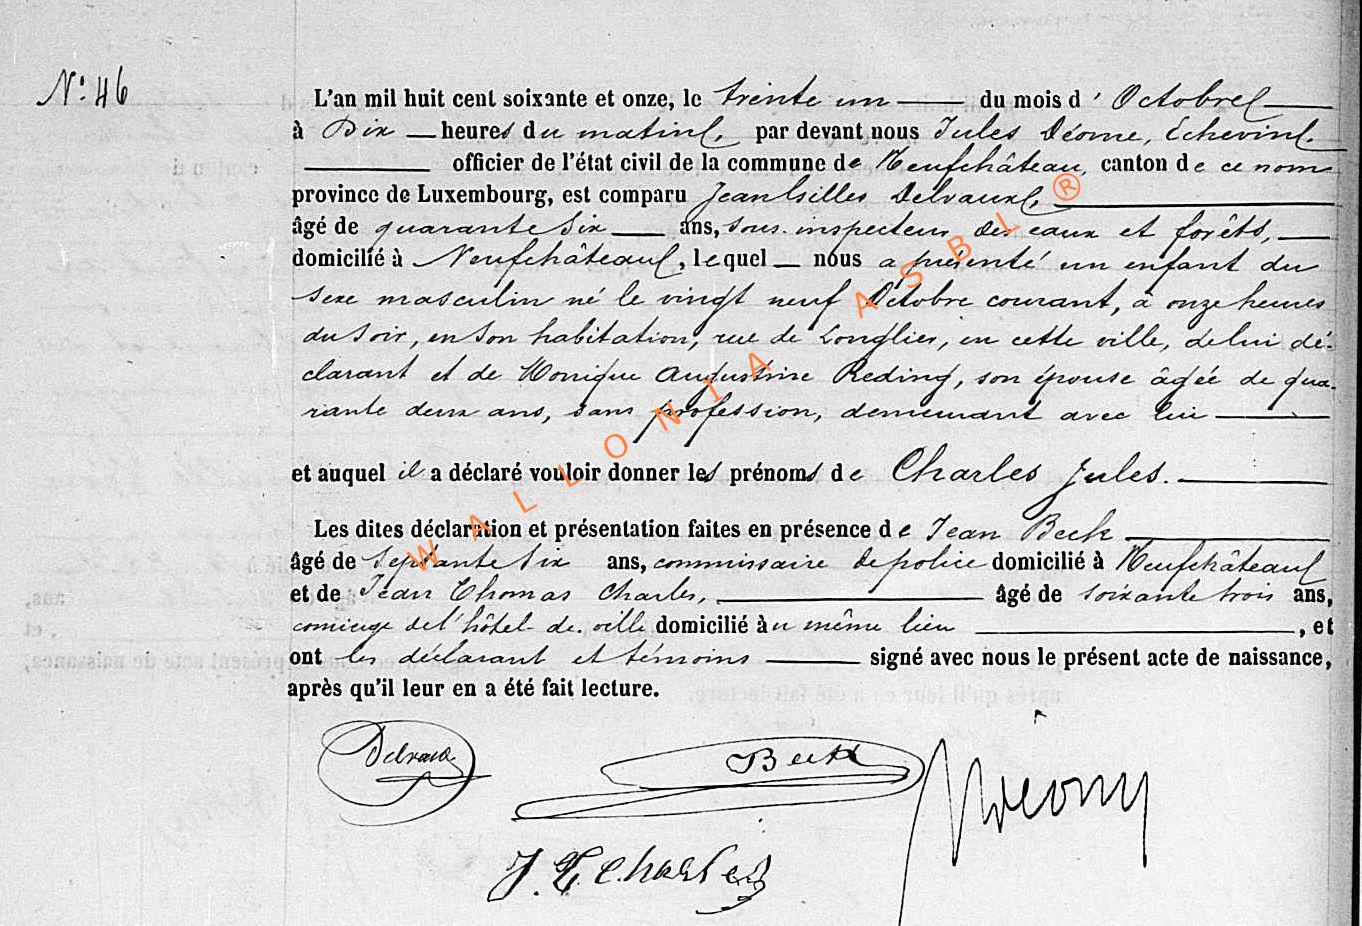 N° 46
L'an mil huit cent soixante et onze, le trente un du mois d'Octobre
à Dix heures du matin, par devant nous Jules Déome, Echevin,
officier de l'état civil de la commune de Neufchâteau, canton de ce nom
province de Luxembourg, est comparu Jean Gilles Delvaux,
âgé de quarante six ans, sous-inspecteur des eaux et forêts,
domicilié à Neufchâteau, lequel nous a présenté un enfant du
sexe masculin né le vingt neuf Octobre courant, à onze heures
du soir, en son habitation, rue de Longlier, en cette ville, de lui dé-
clarant et de Monique Augustine Reding, son épouse âgée de qua-
rante deux ans, sans profession, demeurant avec lui
et auquel il a déclaré vouloir donner les prénoms de Charles Jules.
Les dites déclaration et présentation faites en présence de Jean Beck
âgé de septante six ans, commissaire de police domicilié à Neufchâteau
et de Jean Thomas Charles, âgé de soixante trois ans,
concierge de l'hôtel de ville domicilié au même lieu, et
ont les déclarant et témoins signé avec nous le présent acte de naissance,
après qu'il leur en a été fait lecture.
Delvaux
Beck
J. T. Charles
WALLONIA ASBL ®